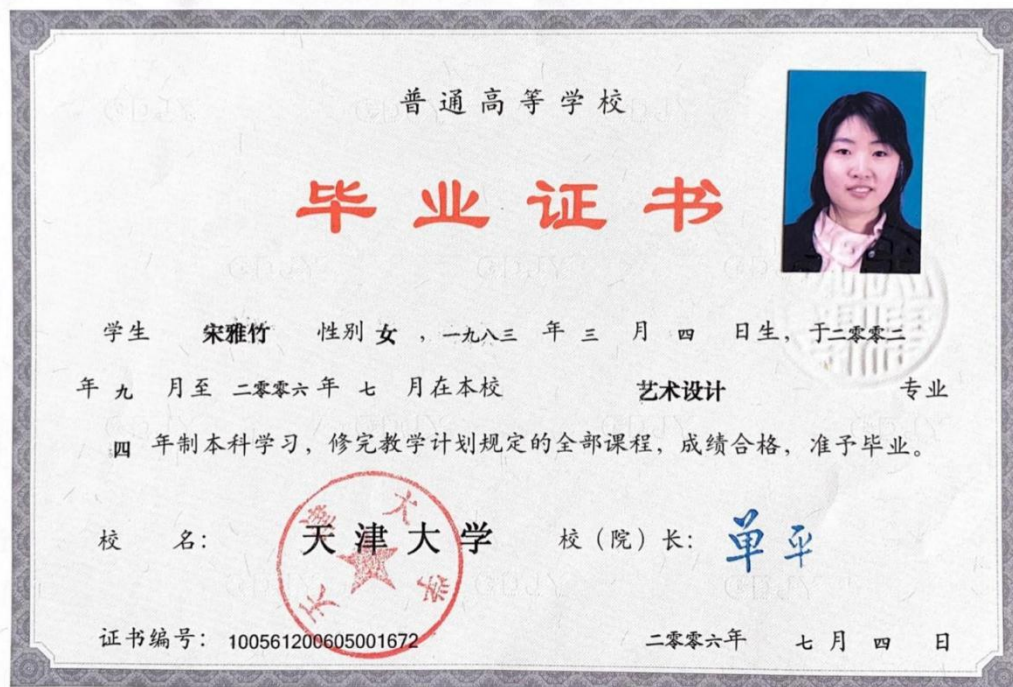 普通高等学校
毕业证书
学生 宋雅竹 性别 女 ，一九八三 年 三 月 四 日生，于二零零二
年 九 月至 二零零六 年 七 月在本校 艺术设计 专业
四 年制本科学习，修完教学计划规定的全部课程，成绩合格，准予毕业。
校 名： 天津大学 校（院）长： 单平
天津大学
证书编号： 100561200605001672 二零零六年 七 月 四 日